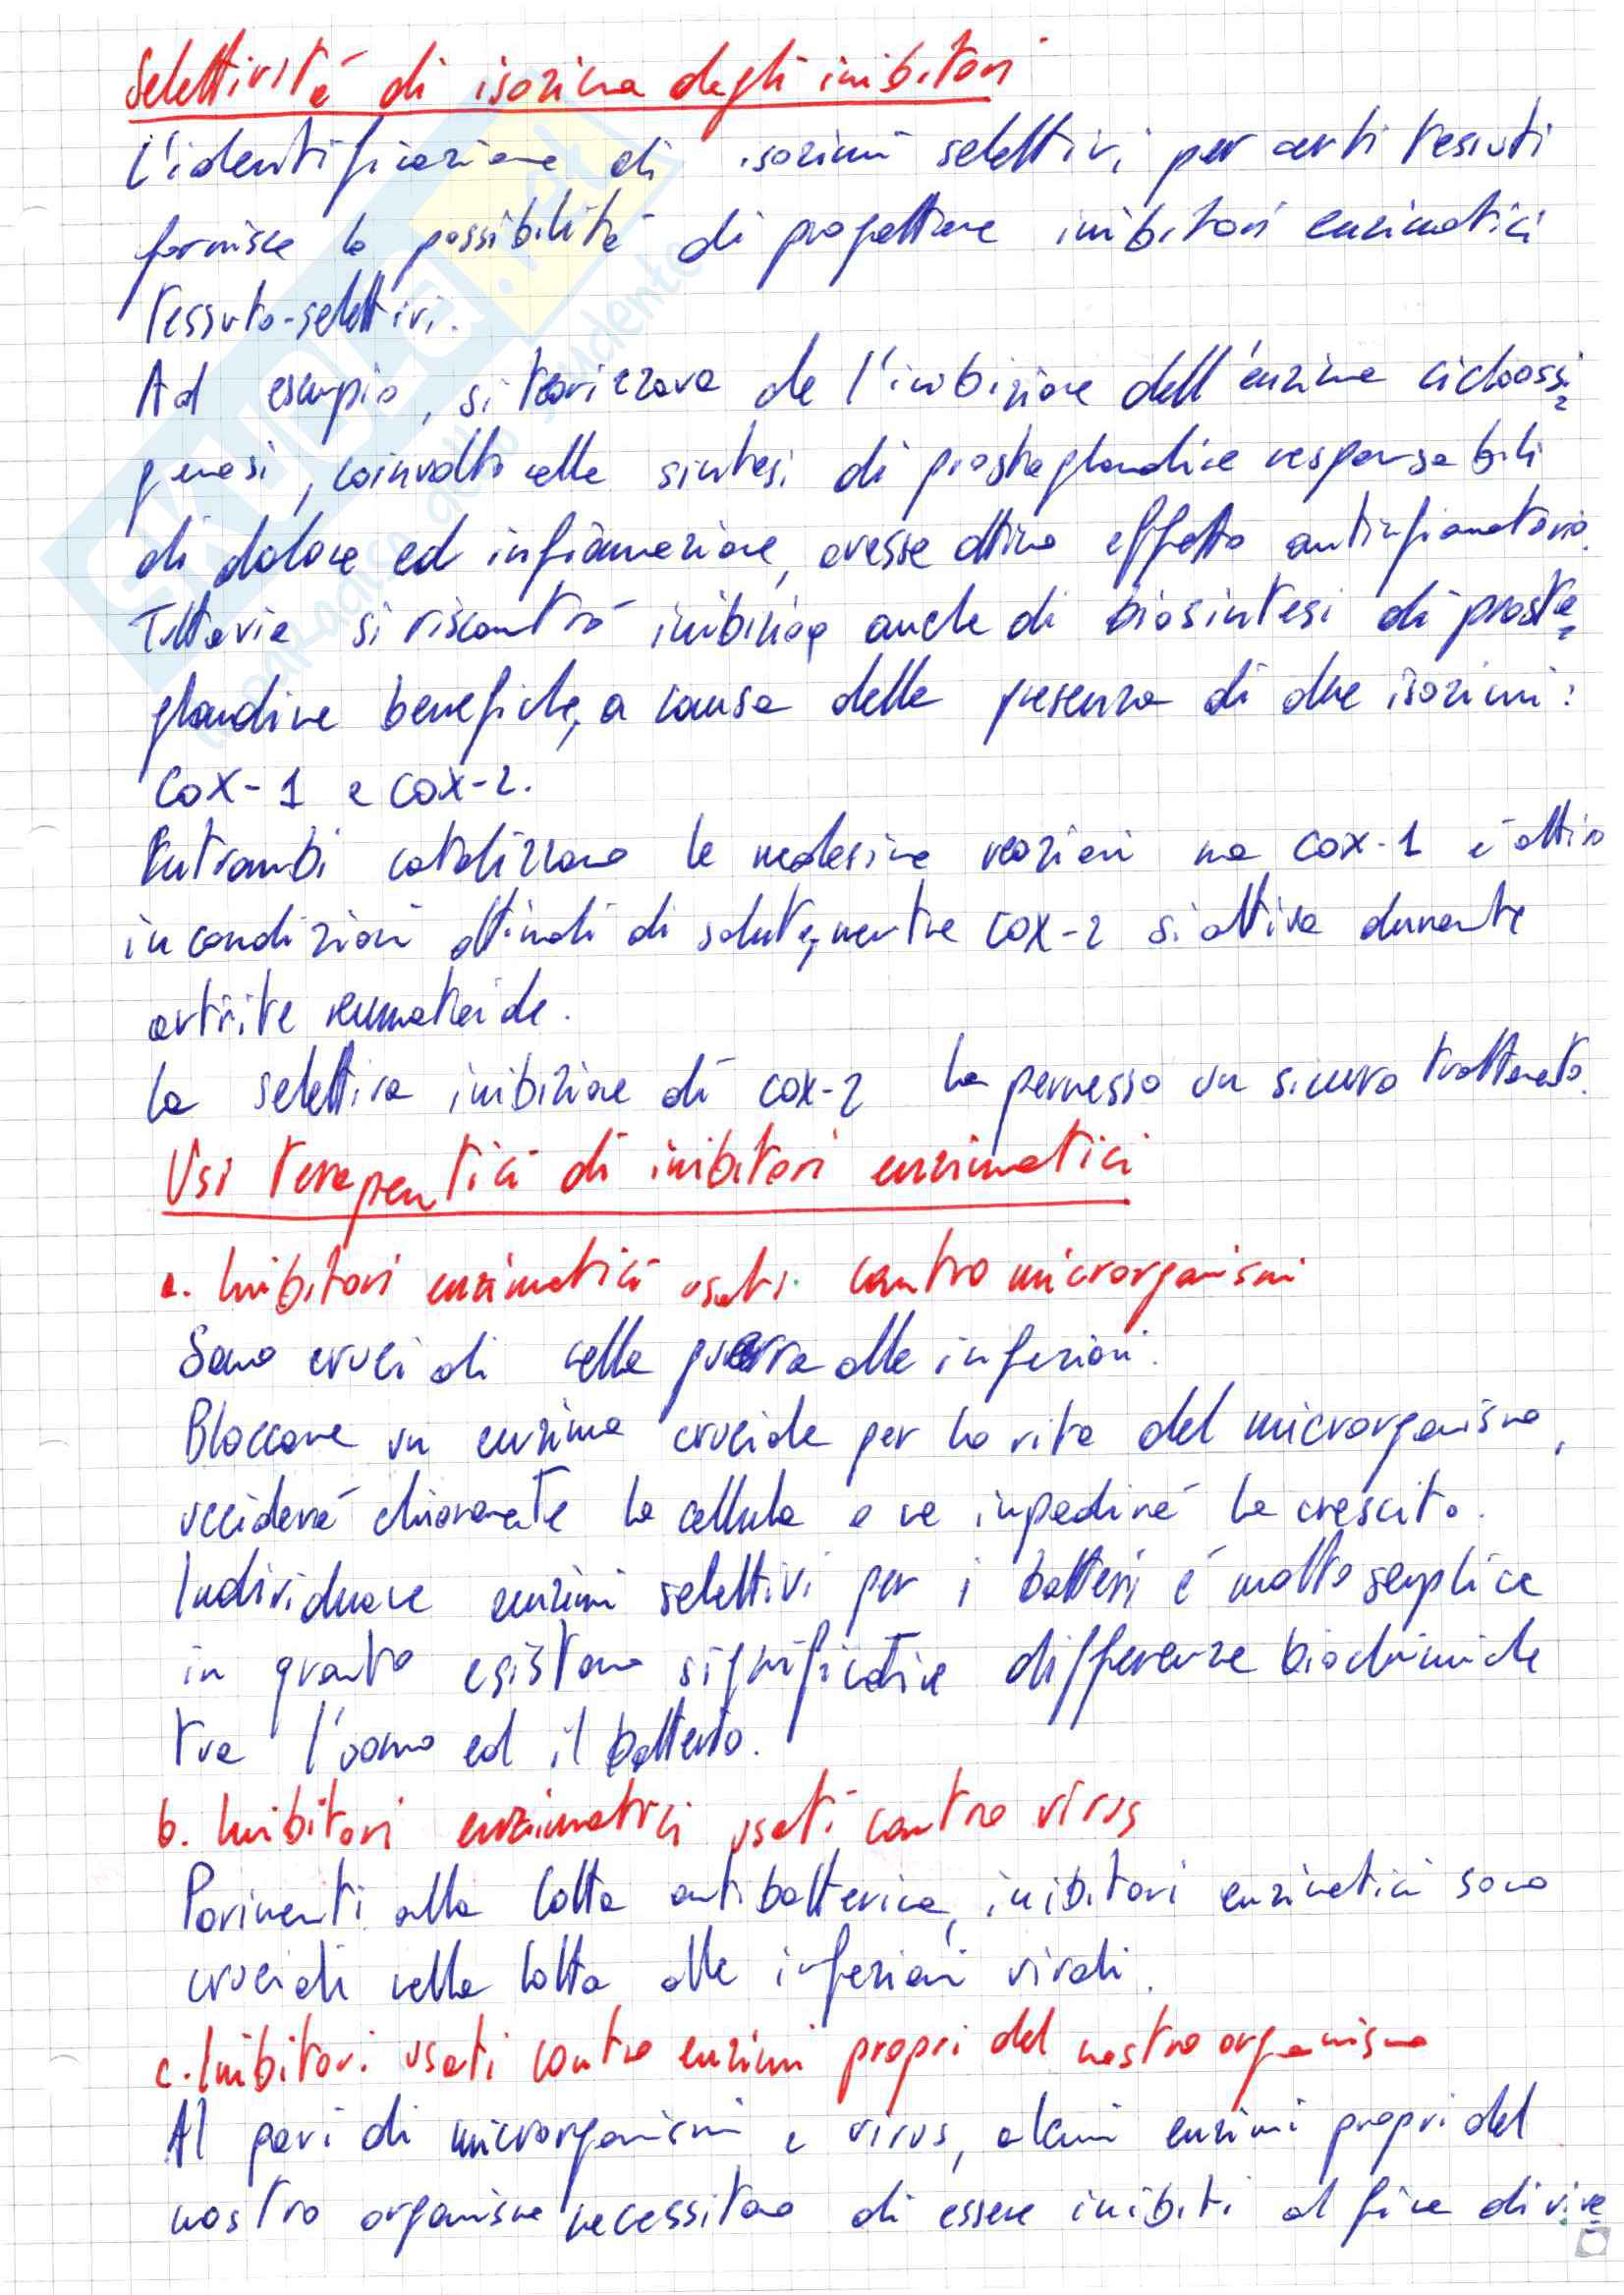 Selettività di isozima degli inibitori
L'identificazione di isozimi selettivi per certi tessuti
fornisce la possibilità di progettare inibitori enzimatici
tessuto-selettivi.
Ad esempio, si teorizzava che l'inibizione dell'enzima cicloossi=
genasi, coinvolto nella sintesi di prostaglandine responsabili
di dolore ed infiammazione, avesse ottimo effetto antinfiamatorio.
Tuttavia si riscontrò inibizione anche di biosintesi di prosta=
glandine benefiche, a causa della presenza di due isozimi:
COX-1 e COX-2.
Entrambi catalizzano le medesime reazioni ma COX-1 è attivo
in condizioni ottimali di salute, mentre COX-2 si attiva durante
artrite reumatoide.
La selettiva inibizione di COX-2 ha permesso un sicuro trattamento.
Usi terapeutici di inibitori enzimatici
a. Inibitori enzimatici usati contro microrganismi
Sono cruciali nella guerra alle infezioni.
Bloccare un enzima cruciale per la vita del microrganismo,
ucciderà chiaramente la cellula o ne impedirà la crescita.
Individuare enzimi selettivi per i batteri è molto semplice
in quanto esistono significative differenze biochimiche
tra l'uomo ed il batterio.
b. Inibitori enzimatici usati contro virus
Parimenti alla lotta antibatterica, inibitori enzimatici sono
cruciali nella lotta alle infezioni virali.
c. Inibitori usati contro enzimi propri del nostro organismo
Al pari di microrganismi e virus, alcuni enzimi propri del
nostro organismo necessitano di essere inibiti al fine di vive=
SKUOLA.net